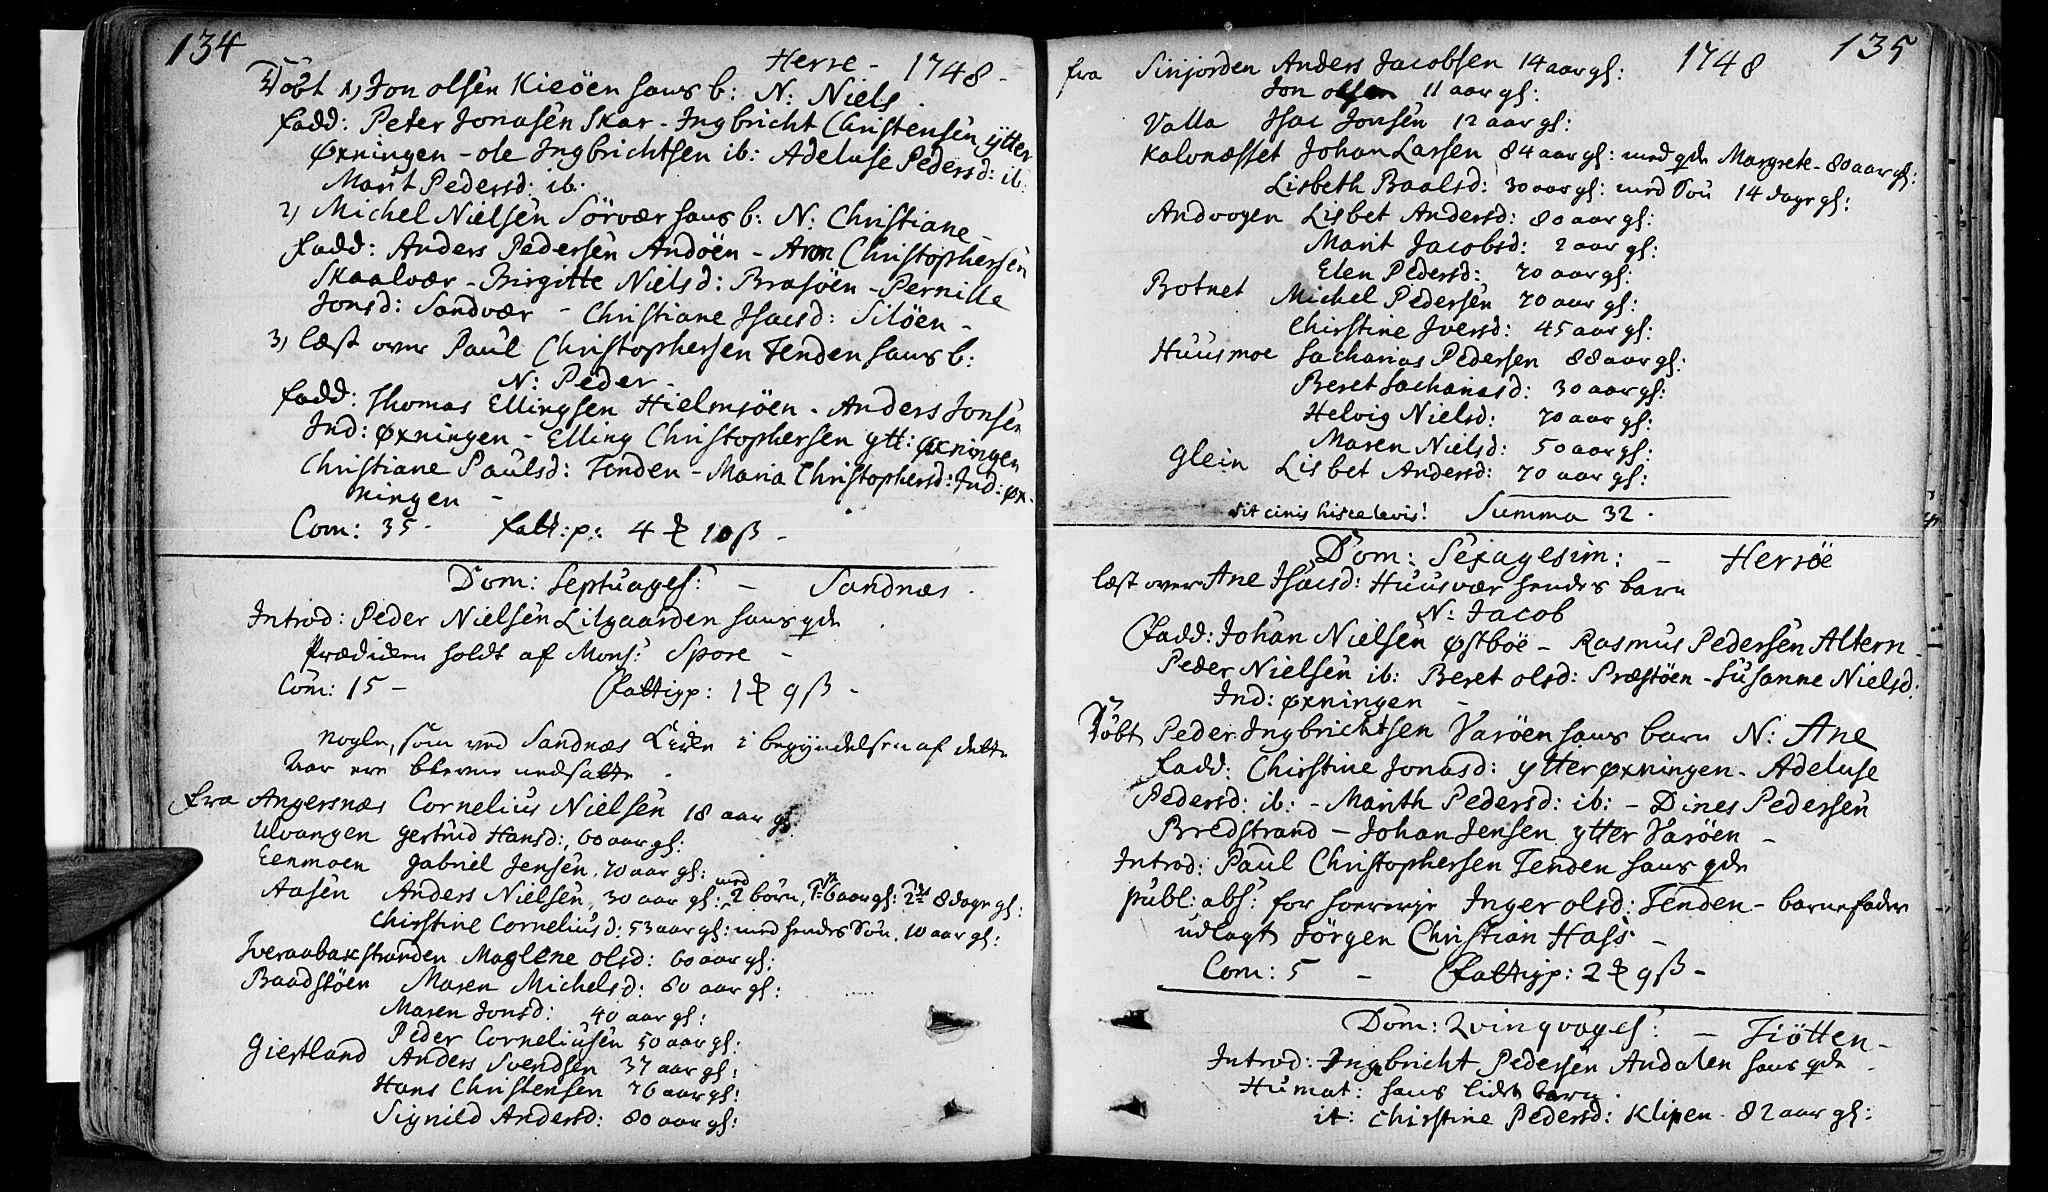 134
Herre - 1748 -
Døbt 1, Jon olsen Kieöen hans b: N: Niels.
fadd: Peter Jonasen Skar - Ingbricht Christensen ytter
Øxningen - ole Ingbrichtsen ib: Adeluse Pedersd: ib:
Marit Pedersd: ib.
2, Michel Nielsen Sörvær hans b: N: Christiane -
fadd: Anders Pedersen Andöen - Aron Christophersen
Skaalvær - Birgitte Nielsd: Brasöen - Pernille
Jonsd: Sandvær - Christiane Isacsd: Silöen -
3, læst over Paul Christophersen Tenden hans b:
N: Peder -
fadd: Thomas Ellingsen Hielmsöen - Anders Jonsen
Ind: Øxningen - Elling Christophersen ytt: Øxningen
Christiane Paulsd: Tenden - Maria Christophersd: Ind: Øx-
ningen -
Com: 35 - fatt: p: 4 ⅌ 10 ß -
Dom: Septuages: - Sandnæs -
Introd: Peder Nielsen Lilgaarden hans qde
Prædicken holdt af Mons: Spore -
Com: 15 - Fattigp: 1 ⅌ 9 ß -
Nogle, som ved Sandnæs Kirke i begyndelsen af dette
Aar ere blevne nedsatte.
fra Angersnæs Cornelius Nielsen 18 aar gl:
Ulvangen Gertrud Hansd: 60 aar gl:
Eenmoen Gabriel Jensen 70 aar gl:
Aasen Anders Nielsen, 30 aar gl: med 2 börn, 1te 6 aar gl: 2det 8 dage gl:
Chirstine Corneliusd: 53 aar gl: med hendes Sön, 10 aar gl:
Tveraabakstranden Maglene olsd: 60 aar gl:
Baadstöen Maren Michelsd: 80 aar gl:
Maren Jonsd: 40 aar gl:
Peder Corneliusen 50 aar gl:
Giestland Anders Svendsen 37 aar gl:
Hans Christensen 76 aar gl:
Signild Andersd: 80 aar gl:
1748 135
fra Sinjorden Anders Jacobsen 14 aar gl:
Jon olsen 11 aar gl:
Valla Isac Jonsen 12 aar gl:
Kalvnæsset Johan Larsen 84 aar gl: med qde Margrete - 80 aar gl:
Lisbeth Paalsd: 30 aar gl: med Sön 14 dage gl:
Andvogen Lisbet Andersd: 80 aar gl:
Marit Jacobsd: 2 aar gl:
Elen Pedersd: 70 aar gl:
Botnet Michel Pedersen 70 aar gl:
Chirstine Iversd: 45 aar gl:
Huusmoe Sacharias Pedersen 88 aar gl:
Beret Sachariasd: 30 aar gl:
Helvig Nielsd: 70 aar gl:
Maren Nielsd: 50 aar gl:
Glein Lisbet Andersd: 70 aar gl:
sit cinis hisce levis! Summa 32.
Dom: Sexagesim: - Herröe
læst over Ane Isacsd: Huusvær hendes barn
N: Jacob
Fadd: Johan Nielsen Østböe - Rasmus Pedersen Altern -
Peder Nielsen ib: Beret olsd: Præstöen - Susanne Nielsd:
Ind: Øxningen -
Döbt Peder Ingbrichtsen Varöen hans barn N: Ane
fadd: Chirstine Jonasd: ytter Øxningen - Adeluse
Pedersd: ib: - Marith Pedersd: ib: - Dines Pedersen
Bredstrand - Johan Jensen ytter Varöen -
Introd: Paul Christophersen Tenden hans qde
publ: abs: for horerie Inger olsd: Tenden - barnefader
udlagt Jörgen Christian Hass -
Com: 5 - Fattigp: 2 ⅌ 9 ß -
Dom: Qvinqvages: - Tiötten -
Introd: Ingbricht Pedersen Andalen hans qde
Humat: hans lidet barn.
it: Chirstine Pedersd: Klipen - 82 aar gl: